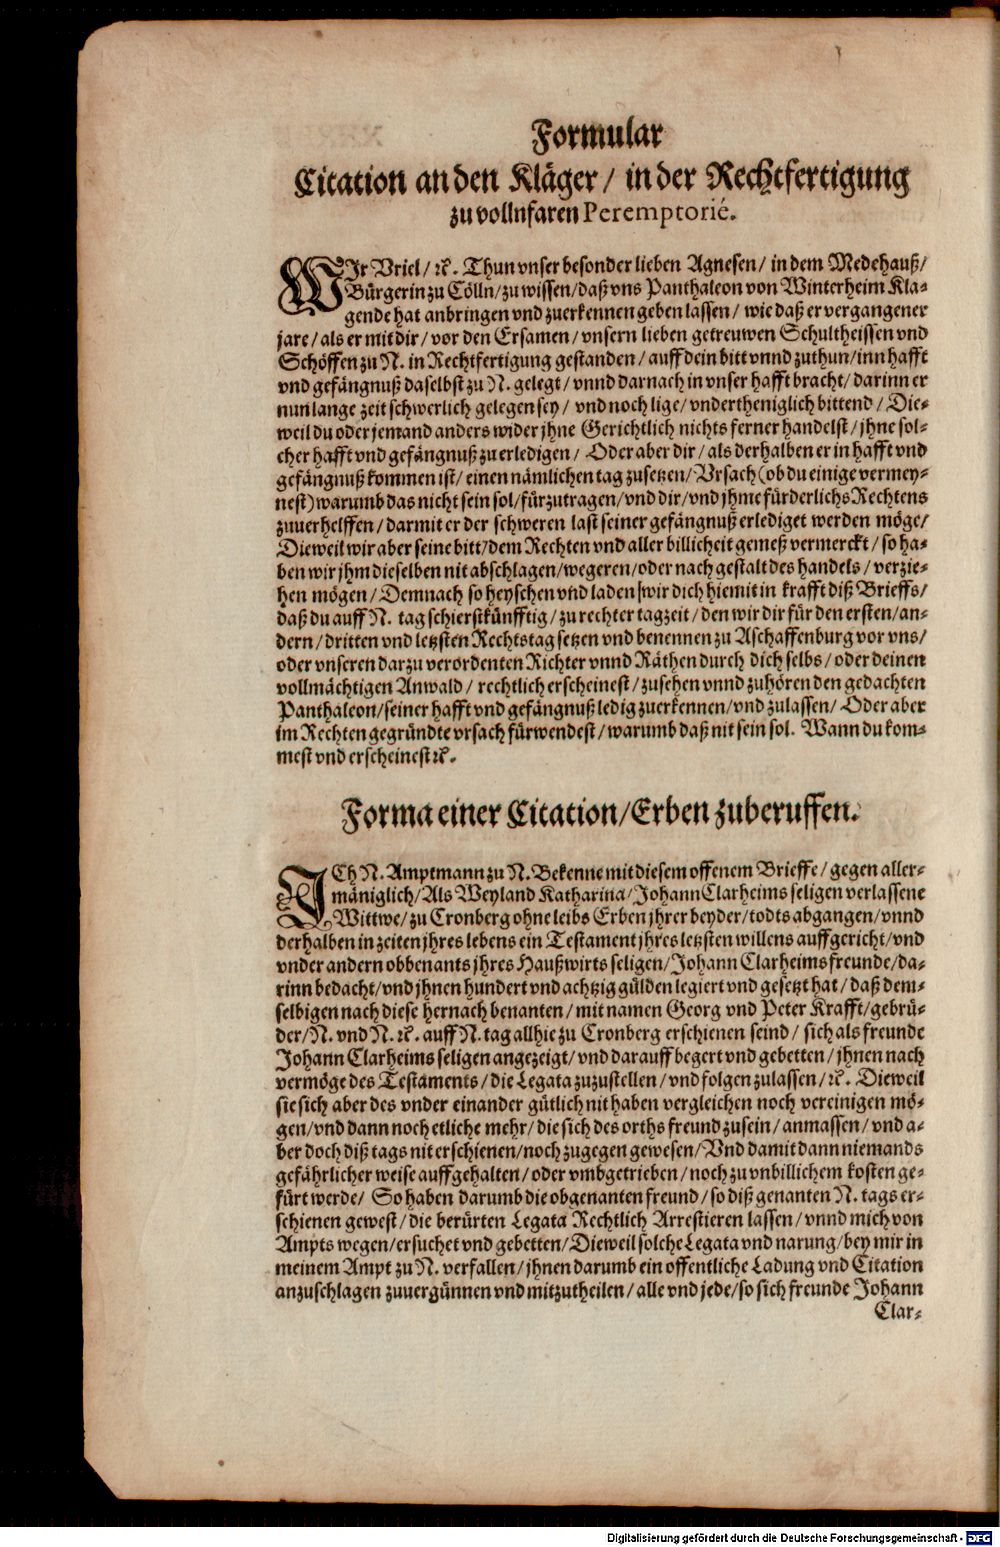 Formular
Citation an den Kläger / in der Rechtfertigung
zu vollnfaren Peremptorié.
WIr Vriel / ꝛc. Thun vnser besonder lieben Agnesen / in dem Medehauß /
Bürgerin zu Cölln / zu wissen / daß vns Panthaleon von Winterheim Kla-
gende hat anbringen vnd zuerkennen geben lassen / wie daß er vergangener
jare / als er mit dir / vor den Ersamen / vnsern lieben getreuwen Schultheissen vnd
Schöffen zu N. in Rechtfertigung gestanden / auff dein bitt vnnd zuthun / inn hafft
vnd gefängnuß daselbst zu N. gelegt / vnnd darnach in vnser hafft bracht / darinn er
nun lange zeit schwerlich gelegen sey / vnd noch lige / vndertheniglich bittend / Die-
weil du oder jemand anders wider jhne Gerichtlich nichts ferner handelst / jhne sol-
cher hafft vnd gefängnuß zu erledigen / Oder aber dir / als derhalben er in hafft vnd
gefängnuß kommen ist / einen nämlichen tag zusetzen / Vrsach (ob du einige vermey-
nest) warumb das nicht sein sol / fürzutragen / vnd dir / vnd jhme fürderlichs Rechtens
zuuerhelffen / darmit er der schweren last seiner gefängnuß erlediget werden möge /
Dieweil wir aber seine bitt / dem Rechten vnd aller billicheit gemeß vermerckt / so ha-
ben wir jhm dieselben nit abschlagen / wegeren / oder nach gestalt des handels / verzie-
hen mögen / Demnach so heyschen vnd laden wir dich hiemit in krafft diß Brieffs /
daß du auff N. tag schierstkünfftig / zu rechter tagzeit / den wir dir für den ersten / an-
dern / dritten vnd letzsten Rechtstag setzen vnd benennen zu Aschaffenburg vor vns /
oder vnseren darzu verordenten Richter vnnd Räthen durch dich selbs / oder deinen
vollmächtigen Anwald / rechtlich erscheinest / zusehen vnnd zuhören den gedachten
Panthaleon / seiner hafft vnd gefängnuß ledig zuerkennen / vnd zulassen / Oder aber
im Rechten gegründte vrsach fürwendest / warumb daß nit sein sol. Wann du kom-
mest vnd erscheinest ꝛc.
Forma einer Citation / Erben zuberuffen.
ICh N. Amptmann zu N. Bekenne mit diesem offenem Brieffe / gegen aller-
mäniglich / Als Weyland Katharina / Johann Clarheims seligen verlassene
Wittwe / zu Cronberg ohne leibs Erben jhrer beyder / todts abgangen / vnnd
derhalben in zeiten jhres lebens ein Testament jhres letzsten willens auffgericht / vnd
vnder andern obbenants jhres Haußwirts seligen / Johann Clarheims freunde / da-
rinn bedacht / vnd jhnen hundert vnd achtzig gülden legiert vnd gesetzt hat / daß dem-
selbigen nach diese hernach benanten / mit namen Georg vnd Peter Krafft / gebrü-
der / N. vnd N. ꝛc. auff N. tag allhie zu Cronberg erschienen seind / sich als freunde
Johann Clarheims seligen angezeigt / vnd darauff begert vnd gebetten / jhnen nach
vermöge des Testaments / die Legata zuzustellen / vnd folgen zulassen / ꝛc. Dieweil
sie sich aber des vnder einander gütlich nit haben vergleichen noch vereinigen mö-
gen / vnd dann noch etliche mehr / die sich des orths freund zusein / anmassen / vnd a-
ber doch diß tags nit erschienen / noch zugegen gewesen / Vnd damit dann niemands
gefährlicher weise auffgehalten / oder vmbgetrieben / noch zu vnbillichem kosten ge-
fürt werde / So haben darumb die obgenanten freund / so diß genanten N. tags er-
schienen gewest / die berürten Legata Rechtlich Arrestieren lassen / vnnd mich von
Ampts wegen / ersuchet vnd gebetten / Dieweil solche Legata vnd narung / bey mir in
meinem Ampt zu N. verfallen / jhnen darumb ein offentliche Ladung vnd Citation
anzuschlagen zuuergünnen vnd mitzutheilen / alle vnd jede / so sich freunde Johann
Clar-
Digitalisierung gefördert durch die Deutsche Forschungsgemeinschaft - DFG